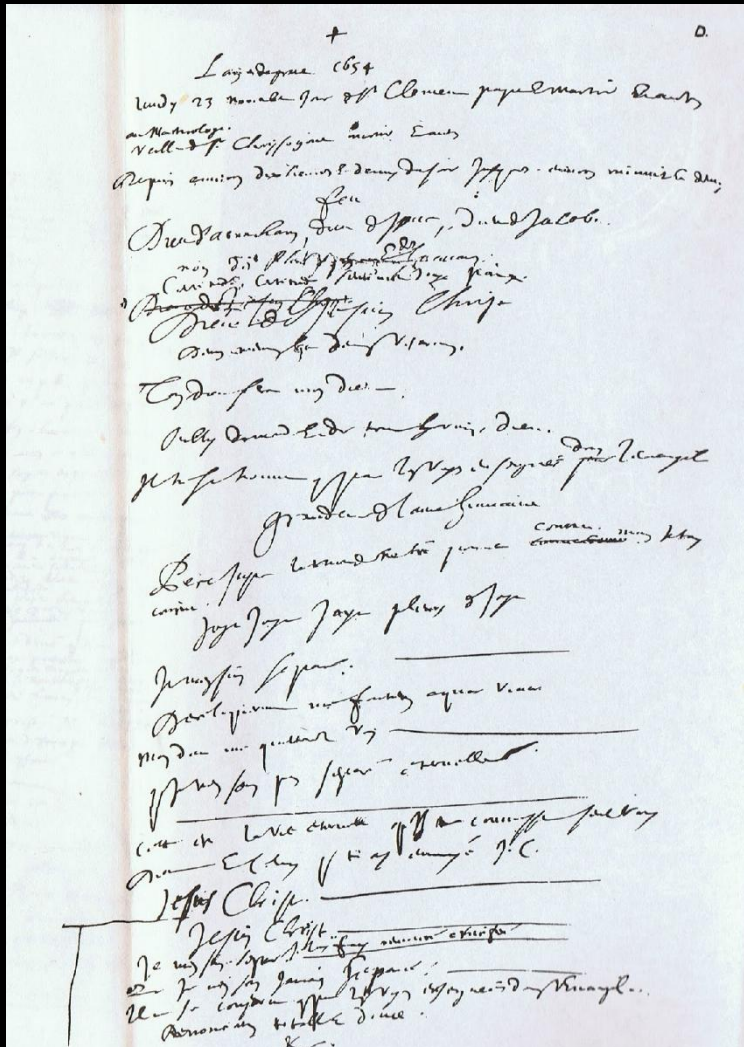 + D.
L'an de grace 1654
Lundy 23 novembre Jour de St Clement pape et martir et autres
au Martirologe.
veille de St Chrysogone martir et autres
Depuis environ dix heures et demy du soir jusques environ minuit et demy
feu
Dieu d'Abraham, Dieu d'Isaac, Dieu de Jacob.
non des philosophes et des scavans.
Certitude certitude sentiment Joye paix.
Dieu de Jesus Christ
Deum meum et Deum vestrum.
Ton Dieu sera mon Dieu
Oubly du monde et de tout hormis Dieu.
Il ne se trouve que par les voyes enseignées dans l'Evangile
Grandeur de l'ame humaine
Pere juste le monde ne t'a point connu mais je t'ay
connu.
Joye Joye Joye pleurs de Joye
Je m'en suis separé.
Dereliquerunt me fontem aquae vivae
mon Dieu me quitterez vous
que je n'en sois pas separé eternellement.
Cette est la vie eternelle qu'ils te connoissent seul vray
Dieu et celuy que tu as envoyé J.C.
Jesus Christ.
Jesus Christ.
Je m'en suis separé je l'ay fui renoncé crucifié
que je n'en sois jamais separé.
Il ne se conserve que par les voyes enseignées dans l'Evangile.
Renonciation totale et douce.